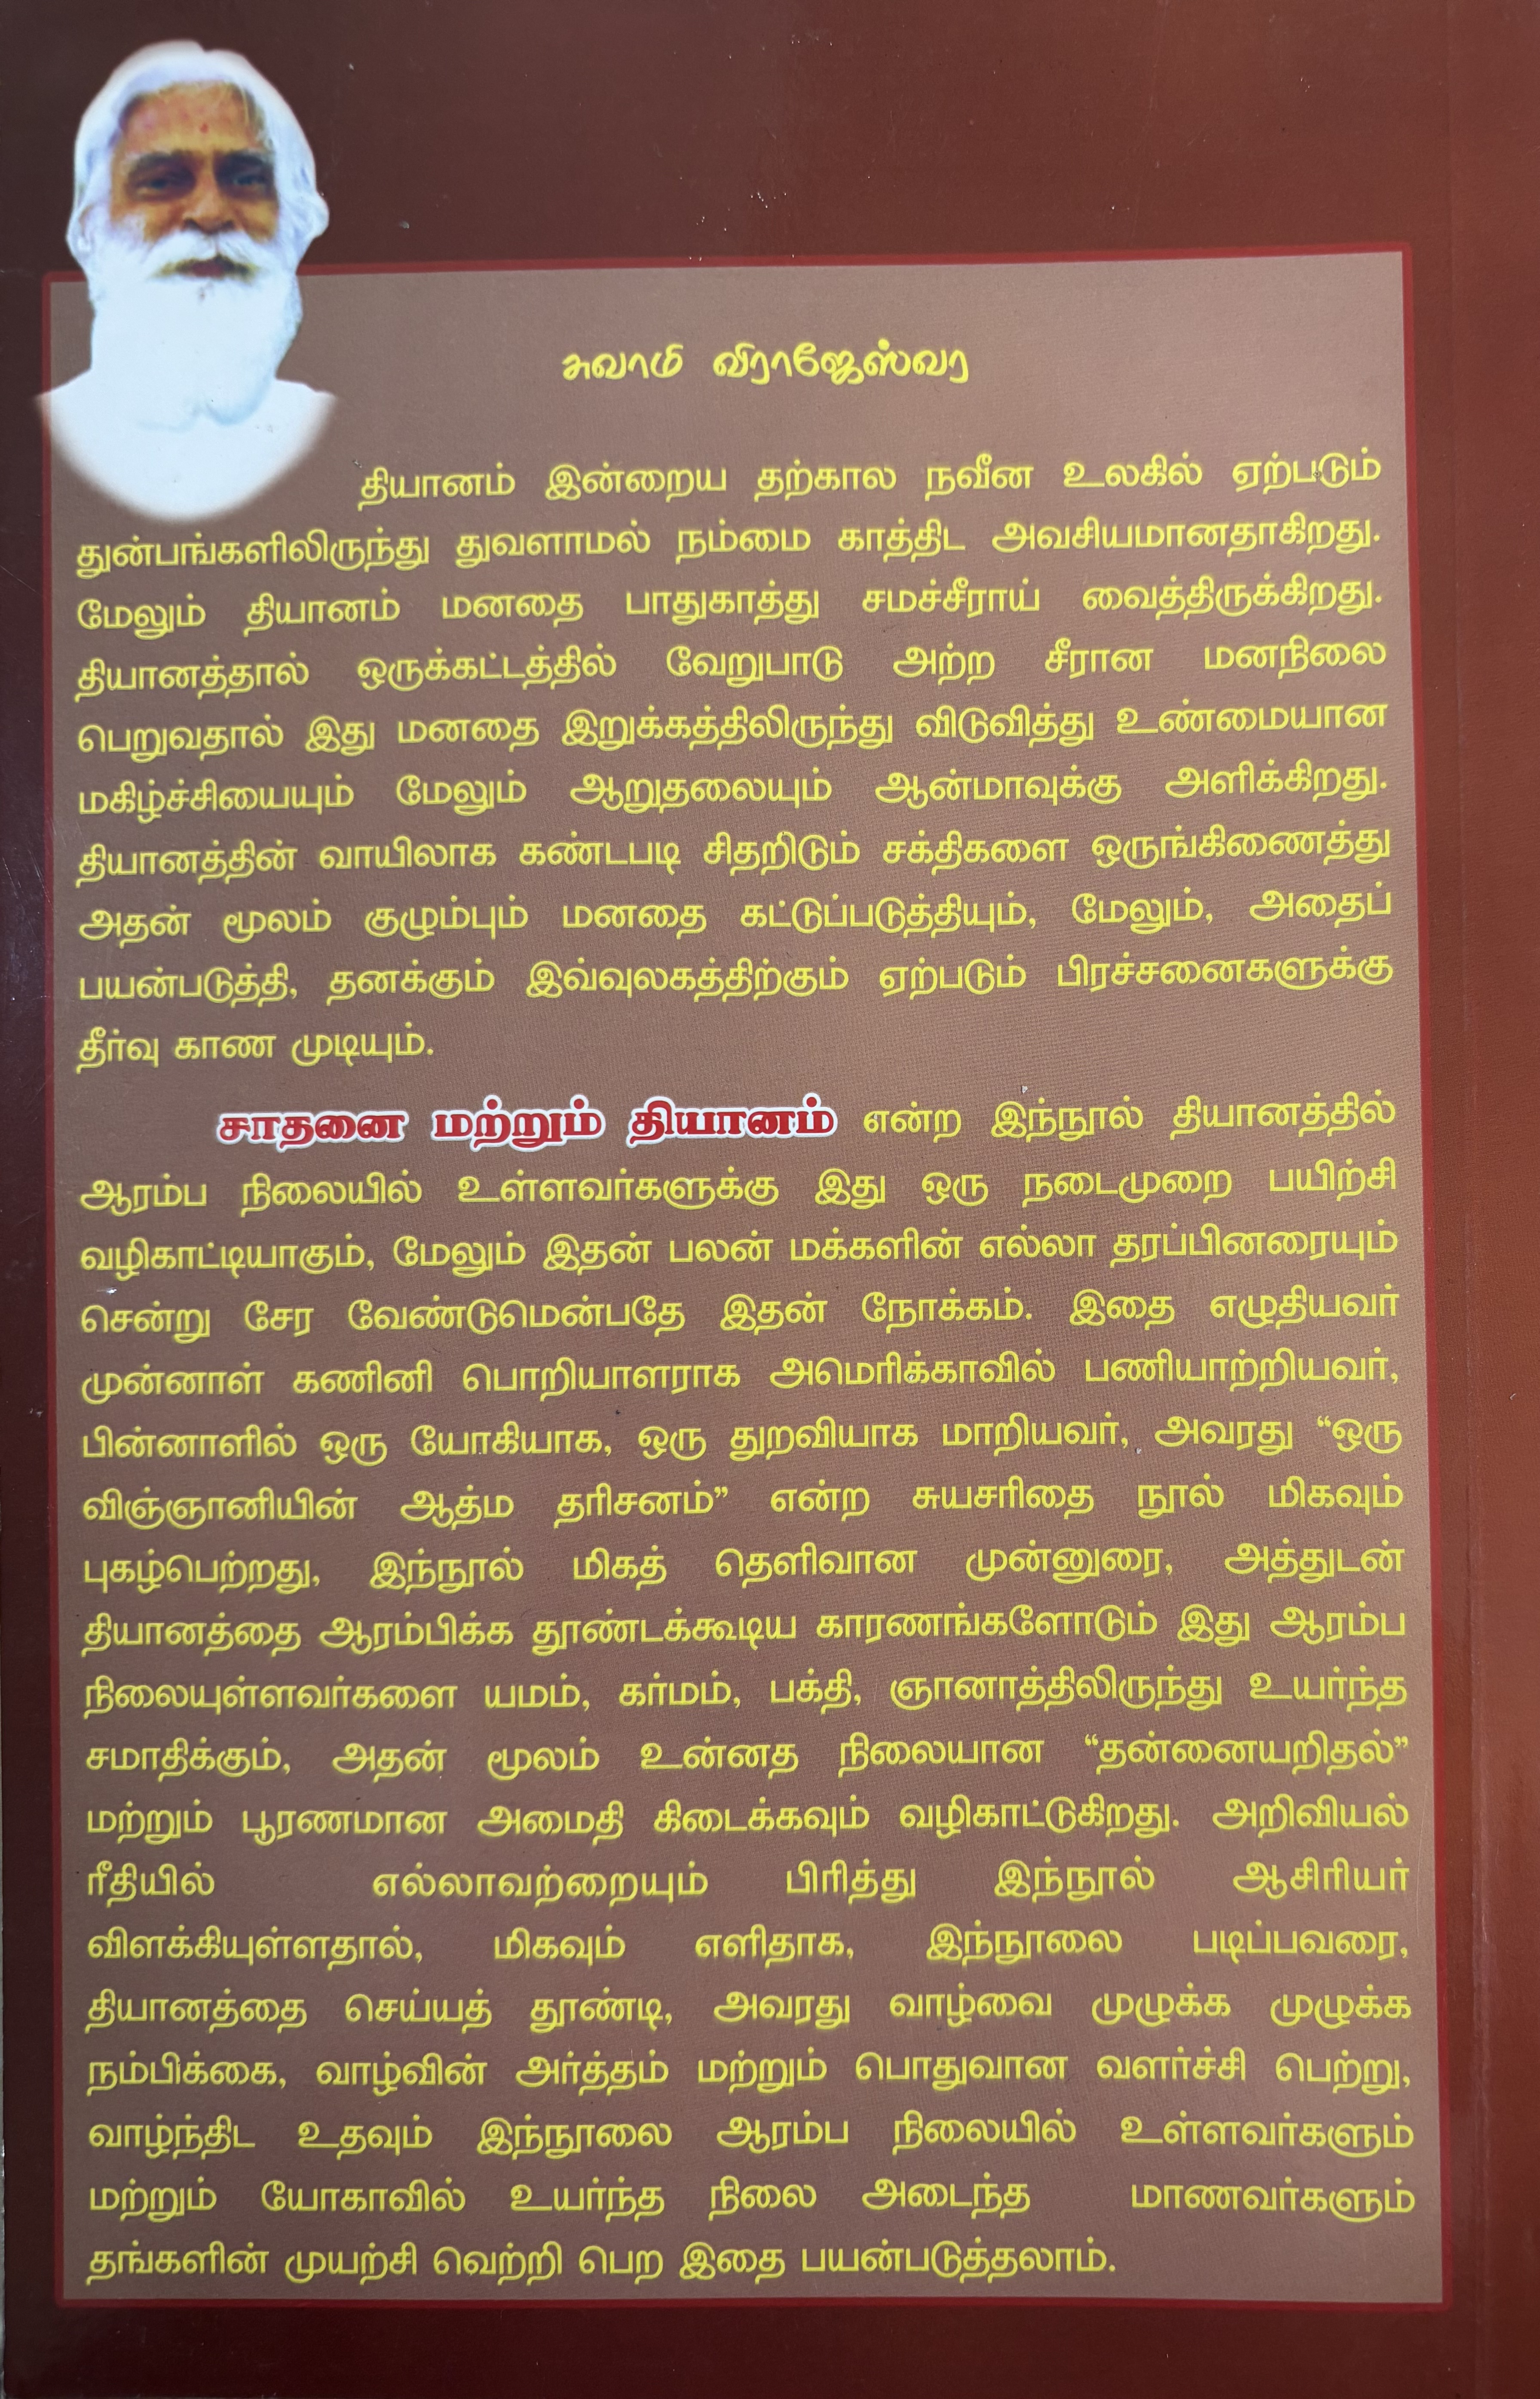 சுவாமி விராஜேஸ்வர
தியானம் இன்றைய தற்கால நவீன உலகில் ஏற்படும்
துன்பங்களிலிருந்து துவளாமல் நம்மை காத்திட அவசியமானதாகிறது.
மேலும் தியானம் மனதை பாதுகாத்து சமச்சீராய் வைத்திருக்கிறது.
தியானத்தால் ஒருக்கட்டத்தில் வேறுபாடு அற்ற சீரான மனநிலை
பெறுவதால் இது மனதை இறுக்கத்திலிருந்து விடுவித்து உண்மையான
மகிழ்ச்சியையும் மேலும் ஆறுதலையும் ஆன்மாவுக்கு அளிக்கிறது.
தியானத்தின் வாயிலாக கண்டபடி சிதறிடும் சக்திகளை ஒருங்கிணைத்து
அதன் மூலம் குழும்பும் மனதை கட்டுப்படுத்தியும், மேலும், அதைப்
பயன்படுத்தி, தனக்கும் இவ்வுலகத்திற்கும் ஏற்படும் பிரச்சனைகளுக்கு
தீர்வு காண முடியும்.
சாதனை மற்றும் தியானம் என்ற இந்நூல் தியானத்தில்
ஆரம்ப நிலையில் உள்ளவர்களுக்கு இது ஒரு நடைமுறை பயிற்சி
வழிகாட்டியாகும், மேலும் இதன் பலன் மக்களின் எல்லா தரப்பினரையும்
சென்று சேர வேண்டுமென்பதே இதன் நோக்கம். இதை எழுதியவர்
முன்னாள் கணினி பொறியாளராக அமெரிக்காவில் பணியாற்றியவர்,
பின்னாளில் ஒரு யோகியாக, ஒரு துறவியாக மாறியவர், அவரது “ஒரு
விஞ்ஞானியின் ஆத்ம தரிசனம்” என்ற சுயசரிதை நூல் மிகவும்
புகழ்பெற்றது, இந்நூல் மிகத் தெளிவான முன்னுரை, அத்துடன்
தியானத்தை ஆரம்பிக்க தூண்டக்கூடிய காரணங்களோடும் இது ஆரம்ப
நிலையுள்ளவர்களை யமம், கர்மம், பக்தி, ஞானாத்திலிருந்து உயர்ந்த
சமாதிக்கும், அதன் மூலம் உன்னத நிலையான “தன்னையறிதல்”
மற்றும் பூரணமான அமைதி கிடைக்கவும் வழிகாட்டுகிறது. அறிவியல்
ரீதியில் எல்லாவற்றையும் பிரித்து இந்நூல் ஆசிரியர்
விளக்கியுள்ளதால், மிகவும் எளிதாக, இந்நூலை படிப்பவரை,
தியானத்தை செய்யத் தூண்டி, அவரது வாழ்வை முழுக்க முழுக்க
நம்பிக்கை, வாழ்வின் அர்த்தம் மற்றும் பொதுவான வளர்ச்சி பெற்று,
வாழ்ந்திட உதவும் இந்நூலை ஆரம்ப நிலையில் உள்ளவர்களும்
மற்றும் யோகாவில் உயர்ந்த நிலை அடைந்த மாணவர்களும்
தங்களின் முயற்சி வெற்றி பெற இதை பயன்படுத்தலாம்.